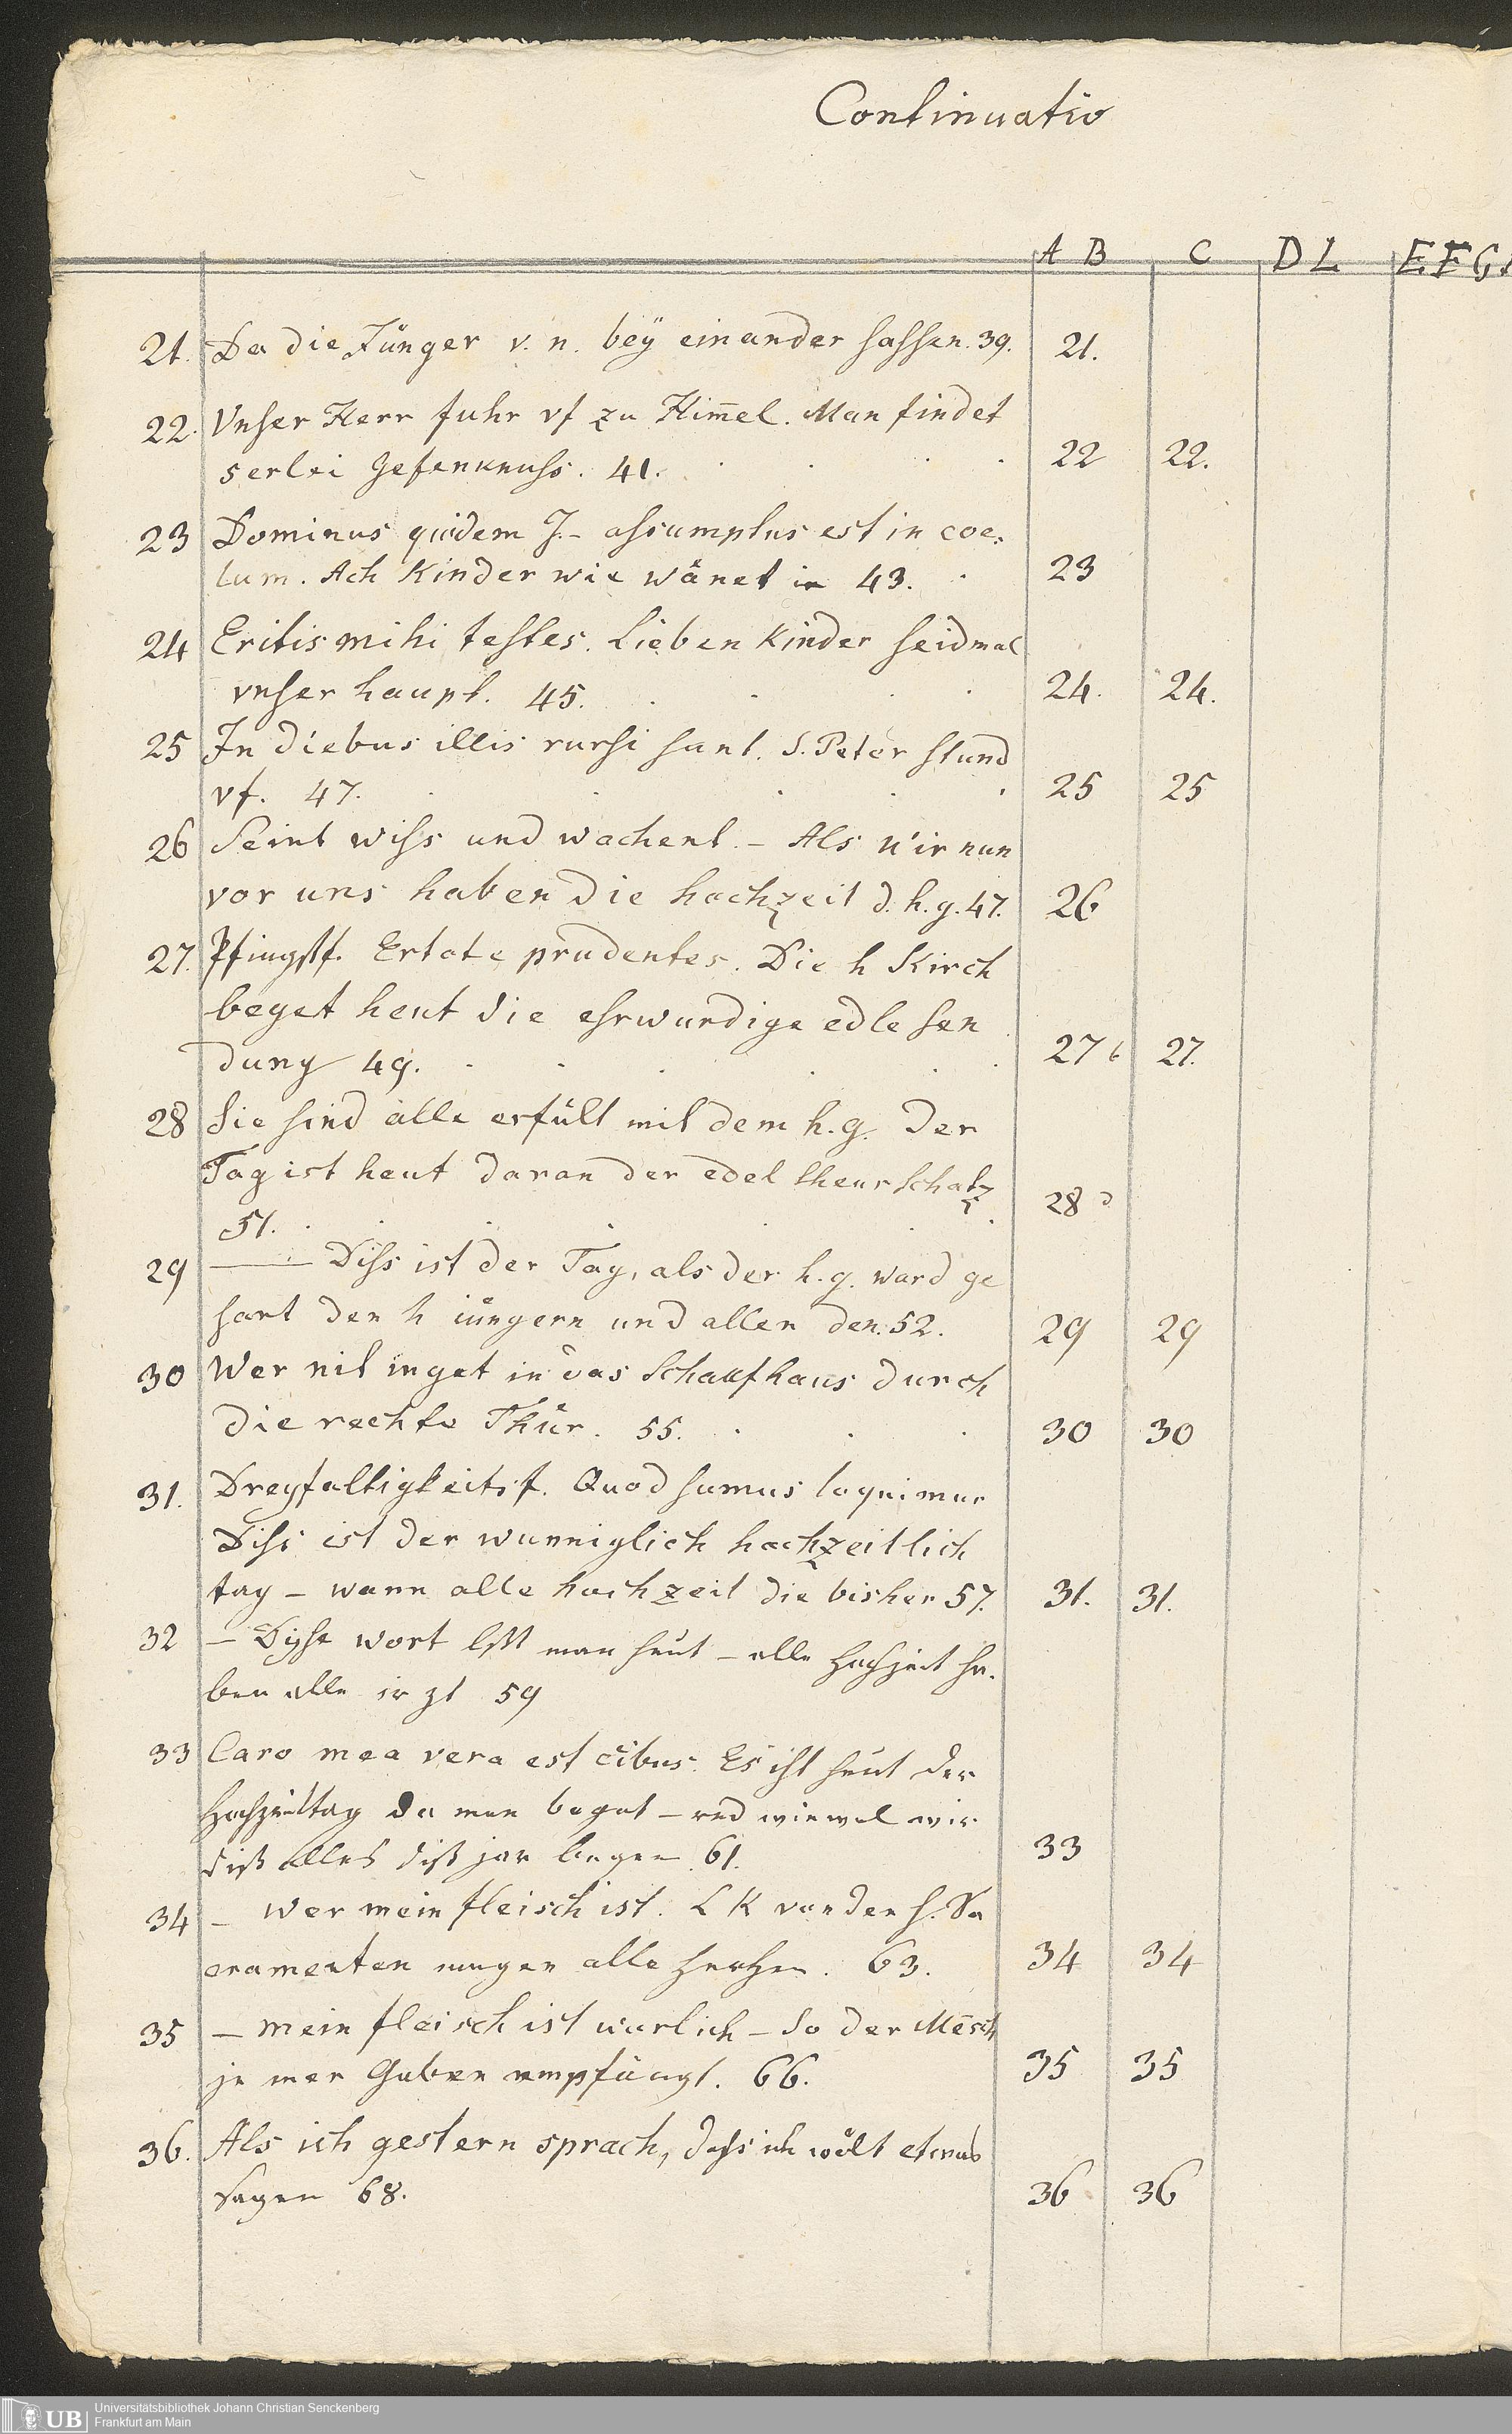 Continuatio
A B C D L E F G
21. Da die Jünger v. n. beÿ einander sassen. 39. 21.
22. Vnser Herr fuhr vf zu Him̄el. Man findet
5erlei Gefenknuss. 41. 22 22.
23 Dominus quidem J. - assumptus est in coe-
lum. Ach Kinder wie wänet ir 43. 23
24 Eritis mihi testes. Lieben Kinder seidmal
vnser haupt. 45. 24. 24.
25 In diebus illis rursi sunt. S. Peter stund
vf. 47. 25 25
26 Seint wiss und wachent. - Als wir nun
vor uns haben die hochzeit d. h. g. 47. 26
27. Pfingstf. Estote prudentes. Die h Kirch
beget heut die ehrwurdige edle sen
dung 49. 27 b 27.
28 Sie sind alle erfült mit dem h. g. Der
Tag ist heut daran der edel theur schatz
51. 28 d
29 — Diss ist der Tag, als der h. g. ward ge
sant den h iüngern und allen den. 52. 29 29
30 Wer nit inget in das Schaafhaus durch
die rechte Thür. 55. 30 30
31. Dreyfaltigkeitsf. Quod sumus loquimur
Diss ist der wunniglich hochzeitlich
tag - wann alle hochzeit die bisher 57. 31. 31.
32 - Dyse wort list man heut - alle hochzeit ha-
ben alle ir zt 59
33 Caro mea vera est cibus. Es ist heut der
Hochzeittag da man beget - vnd wiewol wir
diß alles diß jar begen 61. 33
34 - Wer mein fleisch ist. L K von den h. Sa
cramenten mugen alle Herzen. 63. 34 34
35 - mein fleisch ist warlich - So der Mēsch
je mer Gaben empfängt. 66. 35 35
36. Als ich gestern sprach, dass ich wölt etwas
sagen 68. 36 36
UB
Universitätsbibliothek Johann Christian Senckenberg
Frankfurt am Main